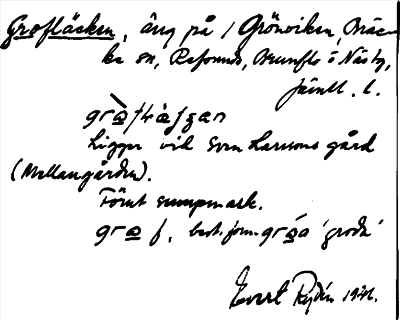 Grofläcken, äng på / Grönviken, Bräc-
ke sn, Refsunds, Brunflo o Näsby,
Jämtl. l.
Ligger vid Sven Larssons gård
(Mellangården).
Förut sumpmark.
gro f, best. form 'groda'
Evert Rydén 1941.